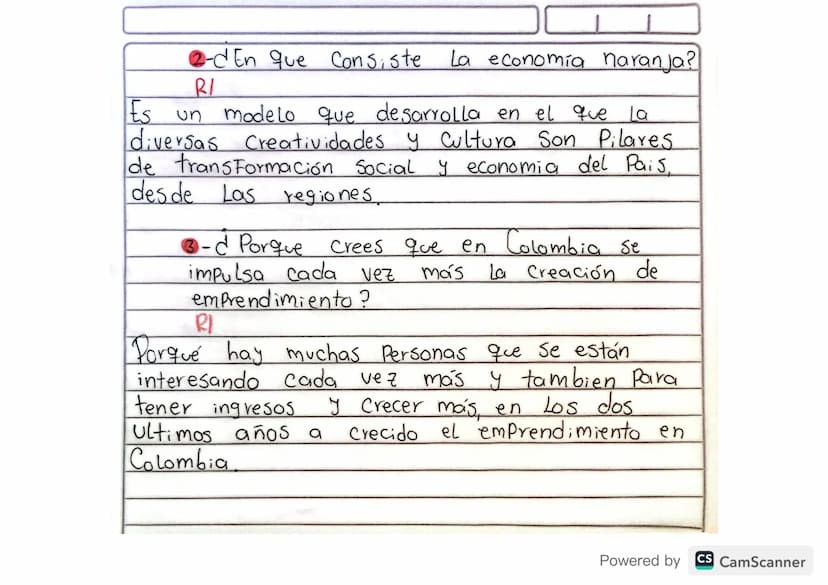 2-¿En que consiste la economía naranja?
R/
Es un modelo que desarrolla en el que la
diversas creatividades y cultura son Pilares
de transFormación Social y economia del Pais,
desde las regiones.
3-¿Porque crees que en Colombia se
impulsa cada vez más la creación de
emprendimiento?
R/
Porqué hay muchas Personas que se están
interesando cada vez más y tambien Para
tener ingresos y crecer más, en los dos
Ultimos años a crecido el emprendimiento en
Colombia.
Powered by CS CamScanner